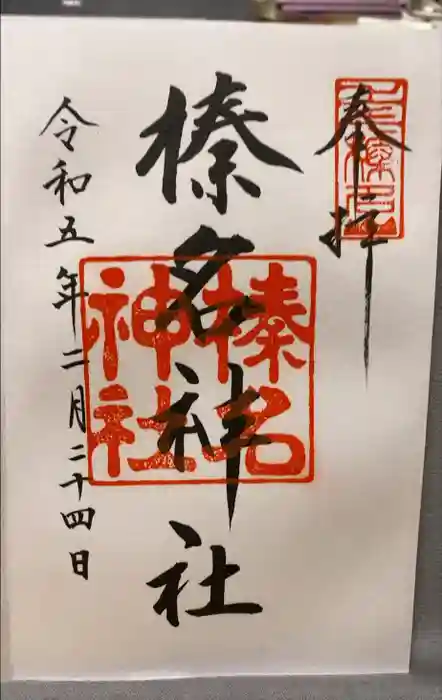 奉拝
榛名神社
榛名
神社
令和五年二月二十四日